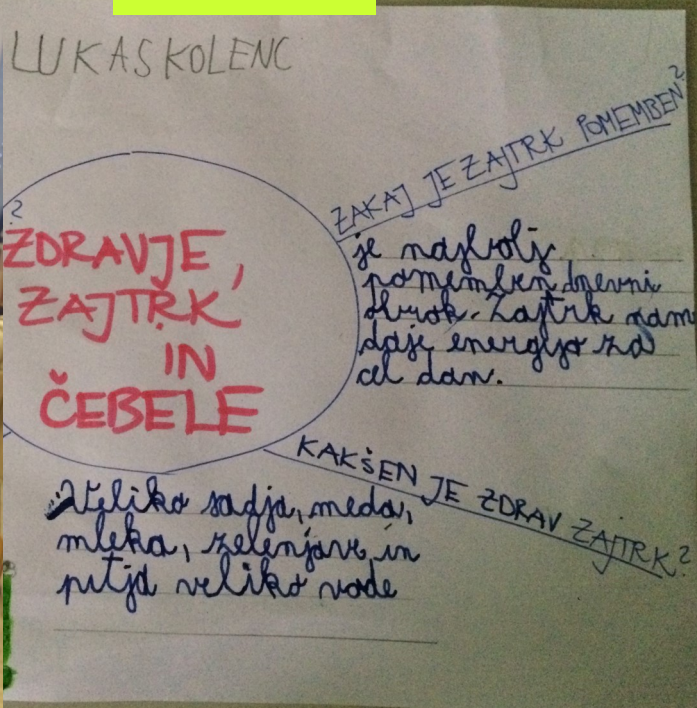 LUKAS KOLENC
?
ZDRAVJE,
ZAJTRK
IN
ČEBELE
ZAKAJ JE ZAJTRK POMEMBEN?
je najbolj
pomemben dnevni
obrok. Zajtrk nam
daje energijo za
cel dan.
KAKŠEN JE ZDRAV ZAJTRK?
Veliko sadja, meda,
mleka, zelenjave in
pitja veliko vode